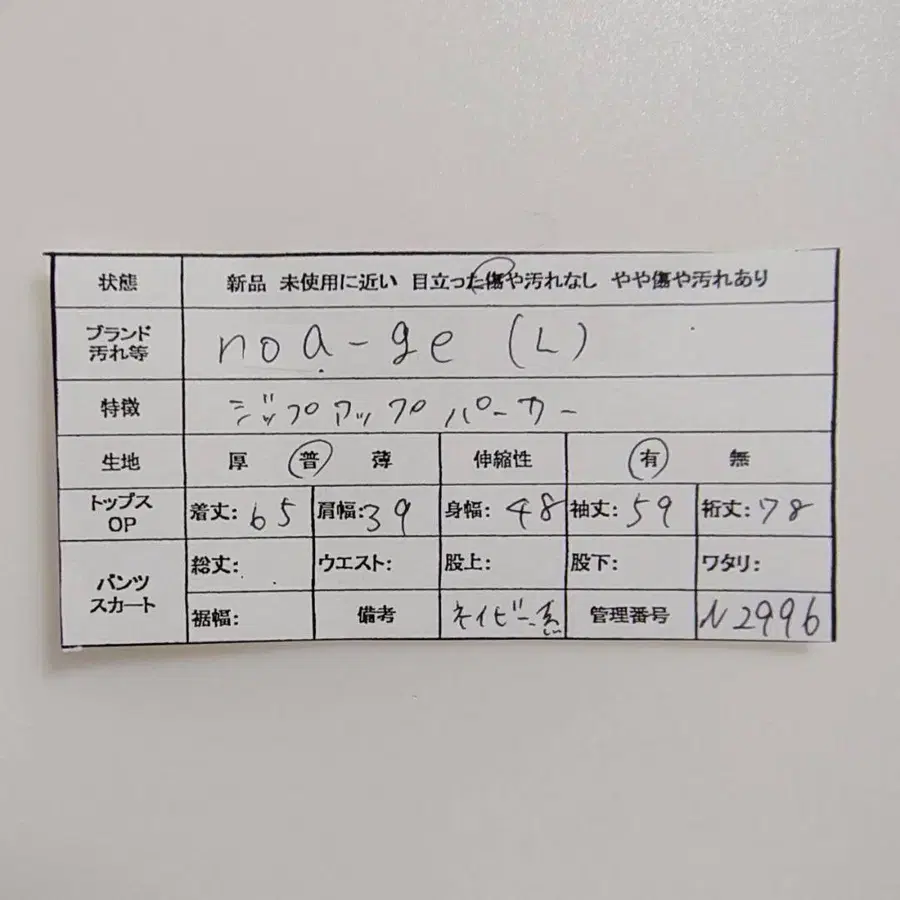 状態 新品 未使用に近い 目立った傷や汚れなし やや傷や汚れあり
ブランド
汚れ等
noa-ge (L)
特徴 ジップアップパーカー
生地 厚 普 薄 伸縮性 有 無
トップス
OP
着丈:65 肩幅:39 身幅:48 袖丈:59 裄丈:78
パンツ
スカート
総丈: ウエスト: 股上: 股下: ワタリ:
裾幅: 備考 ネイビー 管理番号 N2996